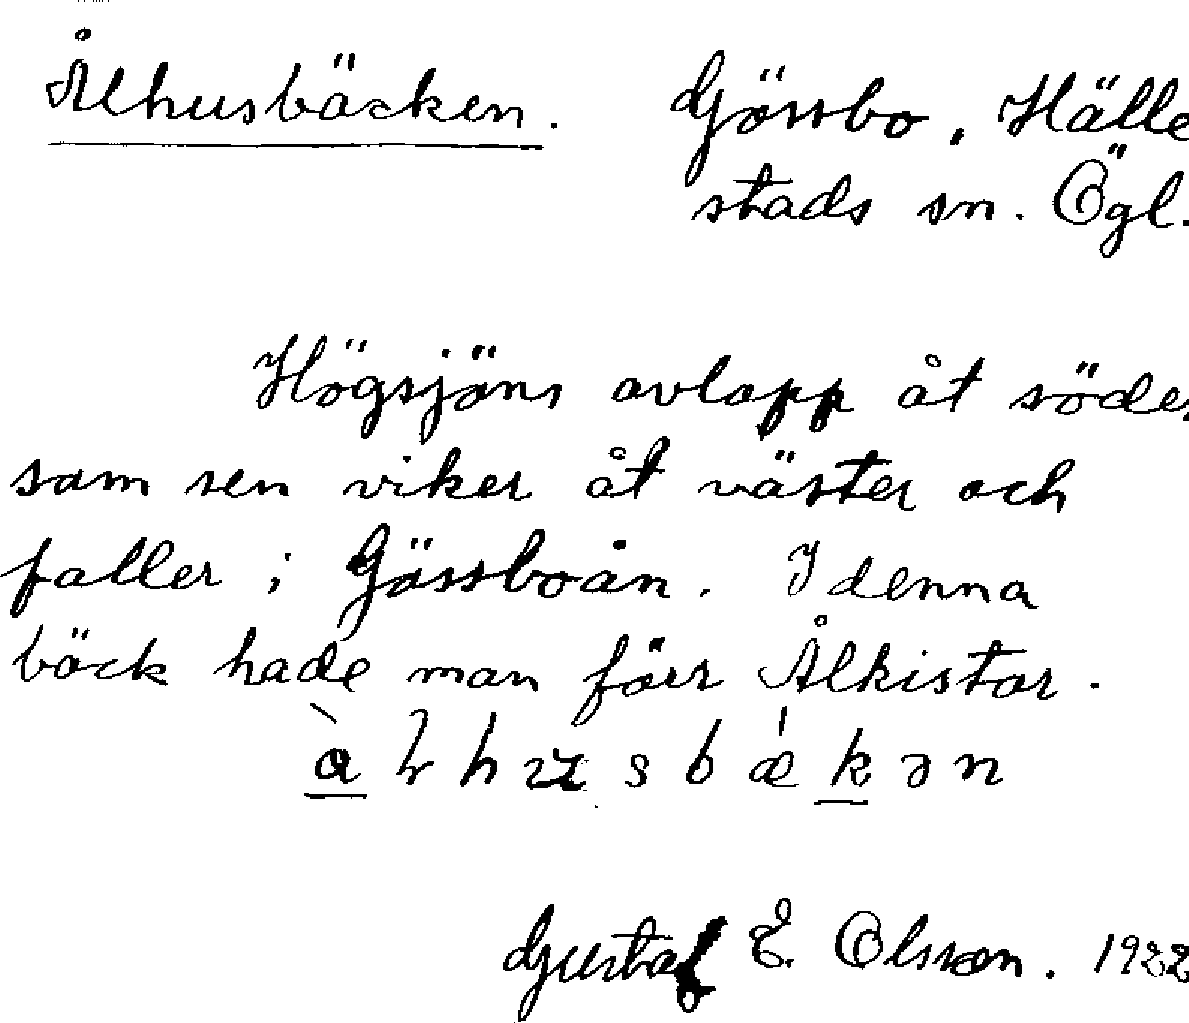 Ålhusbäcken. Gössbo, Hälle
stads sn. Ögl.
Högsjöns avlopp åt söder
som sen viker åt väster och
faller i Gössboån. I denna
bäck hade man förr Ålkistor.
Gustaf E. Olsson. 1922